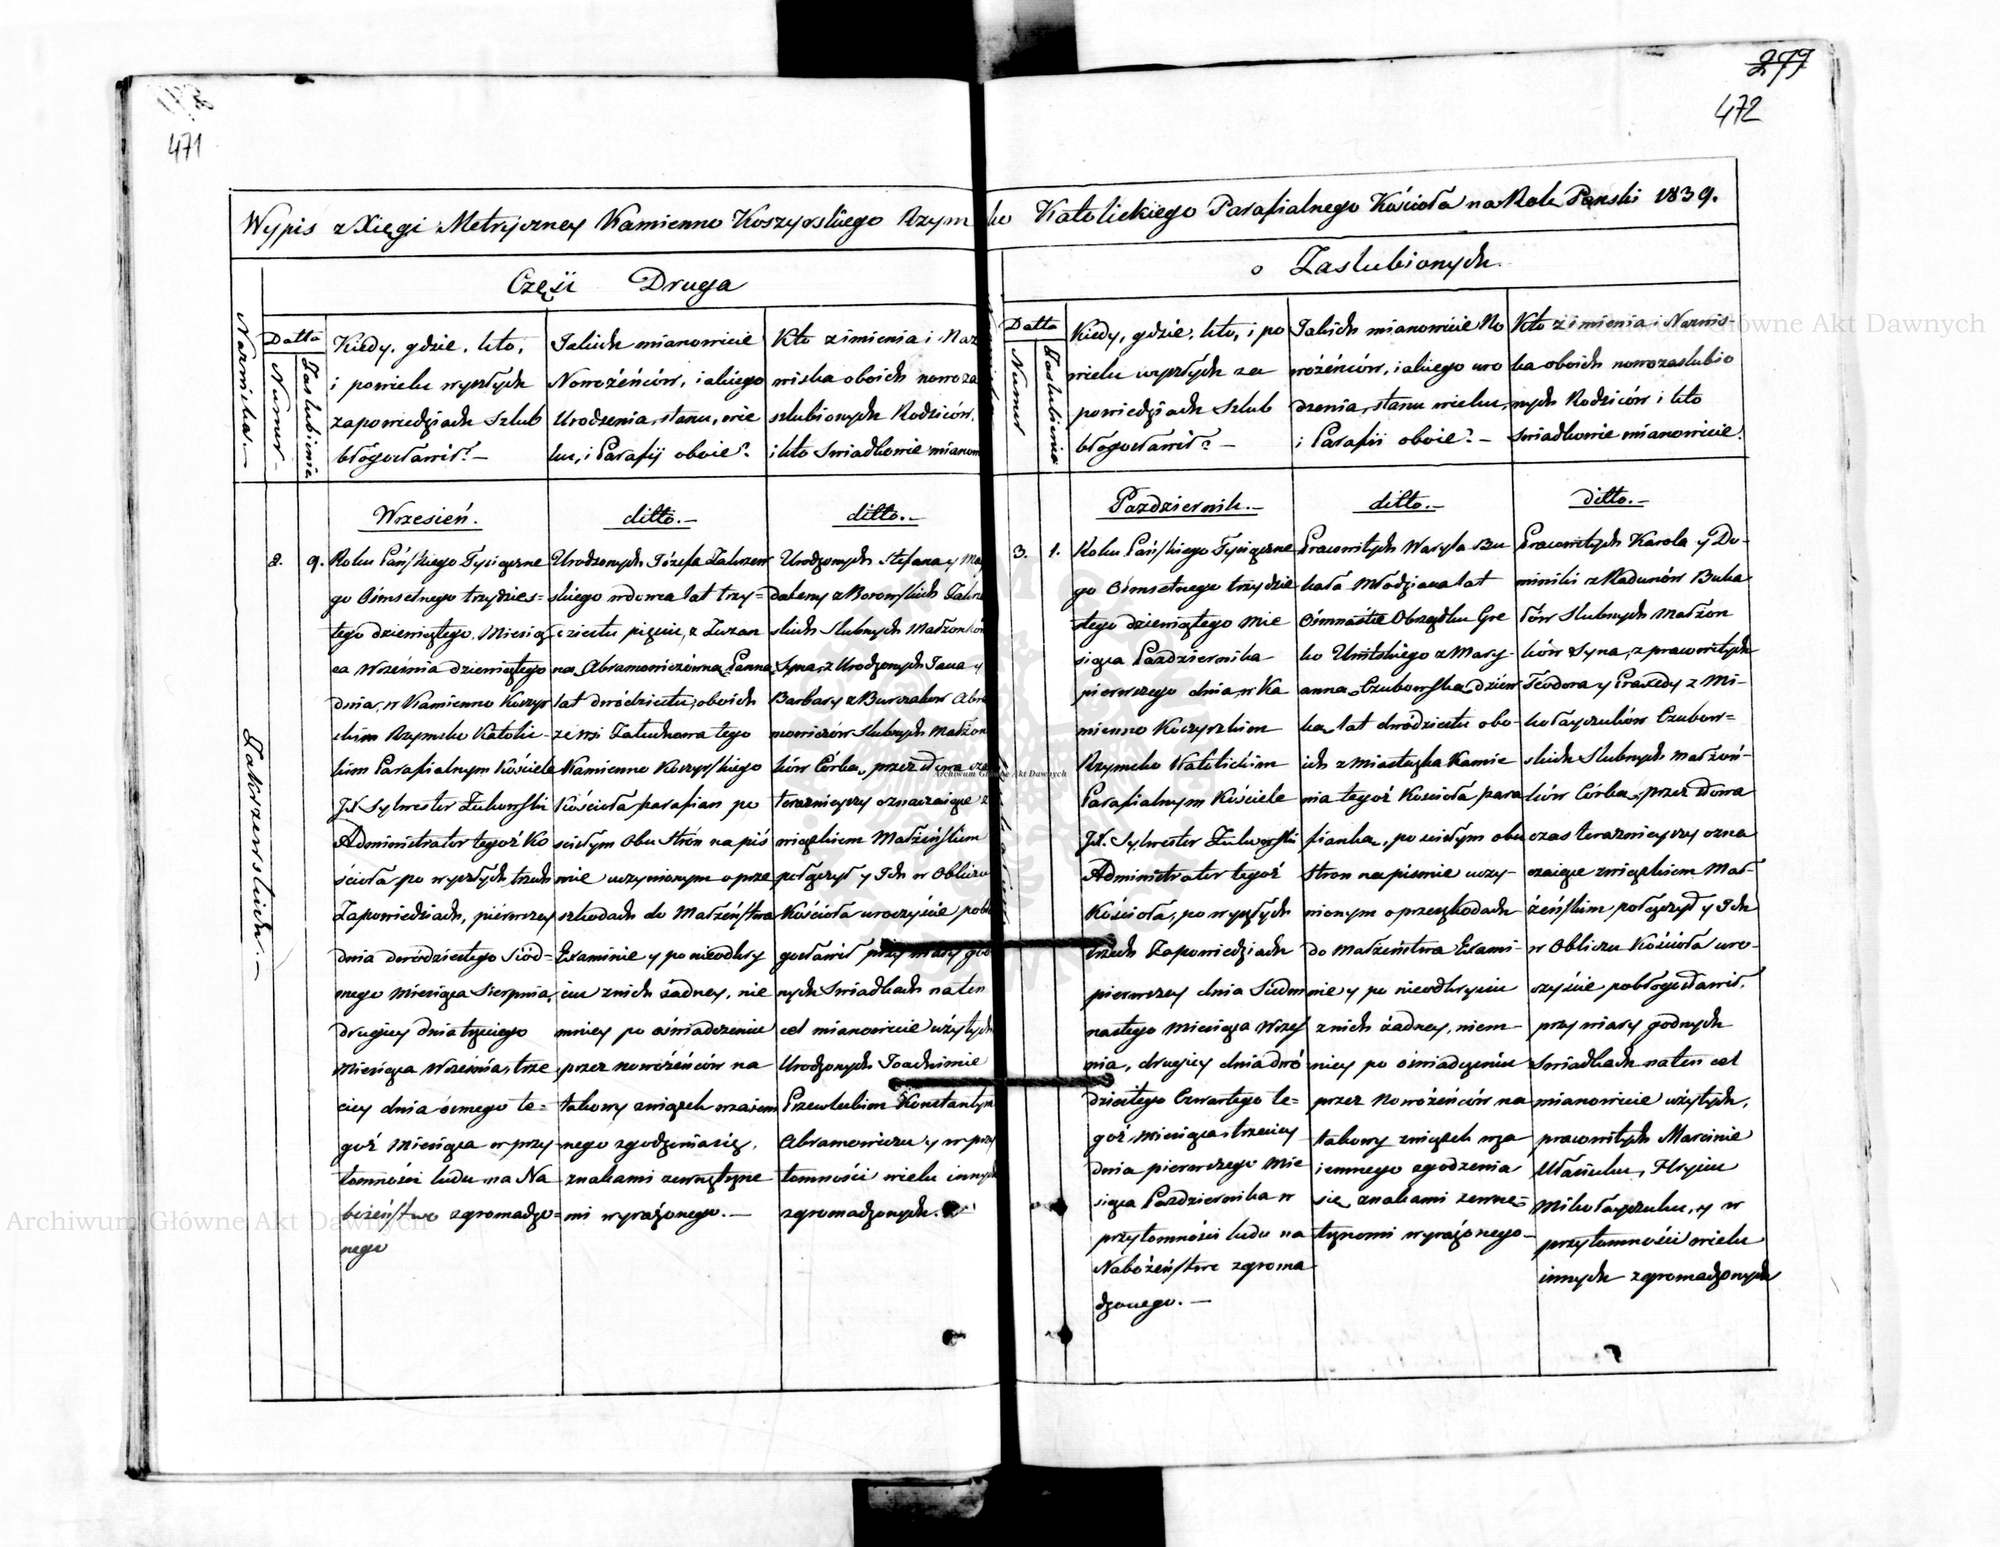 471
277
472
Wypis z Xięgi Metryczney Kamienno Koszyrskiego Rzym ko Katolickiego Parafialnego Kościoła na Rok Panski 1839.
Częśći Druga
o Zaslubionych.
Nazwiska.—
Datta
Numer.
Zaslubienia
Kiedy, gdzie, kto,
i powielu wyszłych
zapowiedziach Szlub
błogosławił?—
Jakich mianowicie
Nowożeńców, iakiego
Urodzenia, stanu, wie
ku, i Parafij oboie?
Kto z imienia i Naz
wiska oboich nowo za
szlubionych Rodziców,
i kto Swiadkowie mianow
Wrzesień.
ditto.—
ditto.—
Zakrzewskich.—
2.
9.
Roku Pańskiego Tysiączne
go Ośmsetnego trzydzies=
tego dziewiątego, Miesią
ca Września dziewiątego
dnia, w Kamienno Koszyr
skim Rzymsko Katolic=
kim Parafialnym Kościele
JX Sylwester Żukowski
Administrator tegoż Ko
ścioła po wyszłych trzech
Zapowiedziach, pierwszey
dnia dwódziestego Siód=
mego Miesiąca Sierpnia,
drugiey dnia trzeciego
Miesiąca Września, trze
ciey dnia ósmego te=
goż Miesiąca w przy
tomności ludu na Na
bożeństwo zgromadzo=
nego
Urodzonych Józefa Zakrzew
skiego wdowca lat trzy=
dziestu pięciu, z Zuzan
ną Abramowiczówną Panną
lat dwódziestu, oboich
ze wsi Zatuchowa tego
Kamienno Koszyrskiego
Kościoła parafian po
ścisłym Obu Strón na piś
mie uczynionym o prze
szkodach do Małżeństwa
Examinie y po nieodkry
ciu znich żadney, nie
mniey po oświadczeniu
przez nowożeńców na
takowy związek wzaiem
nego zgodzenia się,
znakami zewnętrzne
mi wyrażonego.—
Urodzonych Stefana y Ma
daleny z Borowskich Zakrze
skich Slubnych Małżonków
Syna, z Urodzonych Jana y
Barbary z Burzaków Abra
mowiczów Slubnych Małżon
ków Córką, przez słowa cza
teraznieyszy oznaczaiące z
związkiem Małżeńskim
połączył y Ich w Obliczu
Kościoła uroczyście pobło
gosławił przy wiary god
nych Swiadkach na ten
cel mianowicie użytych
Urodzonych Joachimie
Przewłockim Konstantym
Abramowiczu y w przy
tomności wielu innych
zgromadzonych.
Datta
Numer
Zaslubienia
Kiedy, gdzie, kto, i po
wielu wyszłych za
powiedziach Szlub
błogosławił?—
Jakich mianowicie No
wożeńców, iakiego uro
dzenia, stanu wieku,
i Parafii oboie?—
Kto z imienia i Nazwis-
ka oboich nowozaslubio
nych Rodziców i kto
Swiadkowie mianowicie?
Pazdziernik.—
ditto.—
ditto.—
3.
1.
Roku Pańskiego Tysiączne
go Ośmsetnego trzydzie
stego dziewiątego Mie
siąca Pazdziernika
pierwszego dnia, w Ka
mienno Koszyrskim
Rzymsko Katolickim
Parafialnym Kościele
JX. Sylwester Żukowski
Administrator tegoż
Kościoła, po wyszłych
trzech Zapowiedziach
pierwszey dnia Siedm
nastego Miesiąca Wrześ
nia, drugiey dnia dwó
dziestego Czwartego te=
goż Miesiąca, trzeciey
dnia pierwszego Mie
siąca Pazdziernika w
przytomności ludu na
Nabożeństwo zgroma
dzonego.—
Pracowitych Wasyla Bu
kała Młodziana lat
Ośmnaście Obrządku Gre
ko Unitskiego z Mary-
anną Czubowską dziew
ką lat dwódziestu obo-
ich z Miasteczka Kamie
nia tegoż Kościoła para
fianką, po ścisłym obu
Stron na piśmie uczy-
nionym o przeszkodach
do Małżeństwa Exami-
nie y po nieodkryciu
znich żadney, niem-
niey po oświadczeniu
przez Nowożeńców na
takowy związek wza
iemnego zgodzenia
się znakami zewnę=
trznemi wyrażonego—
Pracowitych Karola y Do-
miniki z Radunów Buka
łów Slubnych Małżon
ków Syna, z pracowitych
Teodora y Praxedy z Mi-
kołayczuków Czubow=
skich Slubnych Małżoń-
ków Córką, przez słowa
czas teraznieyszy ozna
czaiące związkiem Mał-
żeńskim połączył y Ich
w Obliczu Kościoła uro-
czyście pobłogosławił,
przy wiary godnych
Swiadkach na ten cel
mianowicie użytych,
pracowitych Marcinie
Ułasiuku, Hryciu
Mikołayczuku, y w
przytomności wielu
innych zgromadzonych
Archiwum Główne Akt Dawnych
Archiwum Główne Akt Dawnych
Główne Akt Dawnych